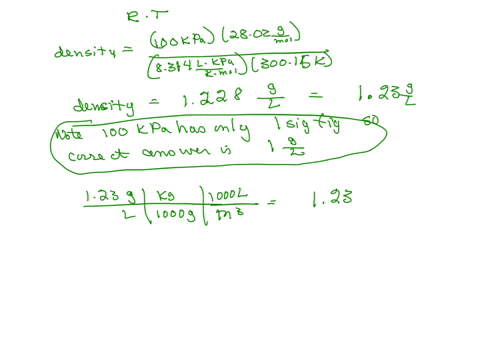 R.T
density = (100 KPa) (28.02 g/mol) / (8.314 L.KPa/K.mol) (300.15 K)
density = 1.228 g/L = 1.23 g/L
Note 100 KPa has only 1 sig fig so
correct answer is 1 g/L
1.23 g / L | Kg / 1000g | 1000L / m³ = 1.23